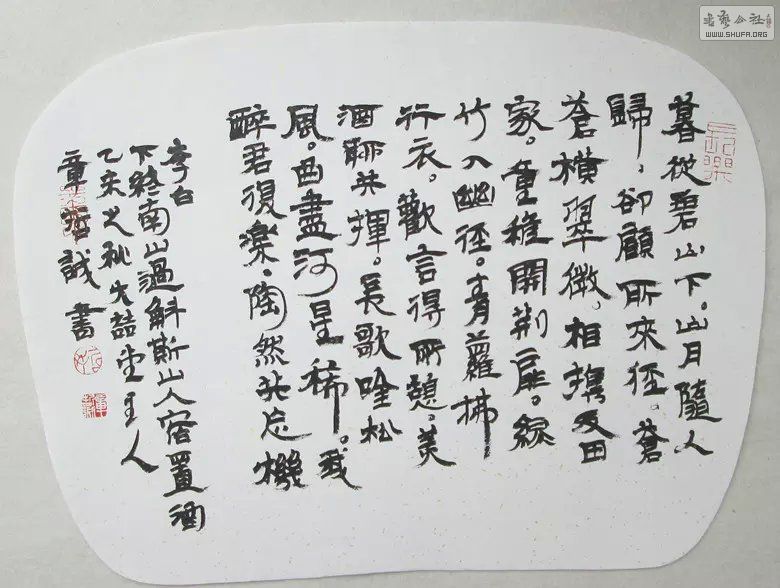 暮從碧山下。山月隨人
歸，卻顧所來徑。蒼
蒼橫翠微。相攜及田
家。童稚開荆扉。綠
竹入幽徑。青蘿拂
行衣。歡言得所憩。美
酒聊共揮。長歌吟松
風。曲盡河星稀。我
醉君復樂。陶然共忘機
李白
下終南山過斛斯山人宿置酒
乙未之秋喆堂主人
章誠書
WWW.SHUFA.ORG